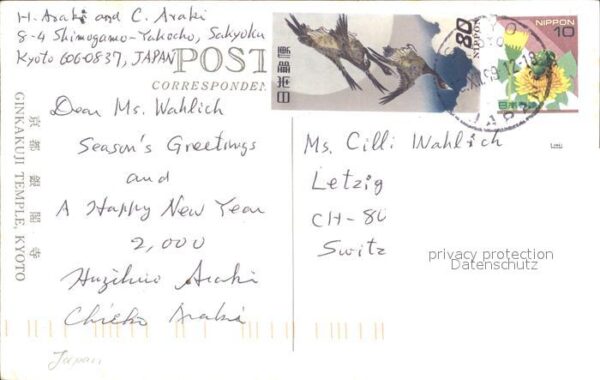 H. Araki and C. Araki
8-4 Shimogamo-Yakocho, Sakyoku
Kyoto 606-0837, JAPAN
POST
CORRESPONDEN
日本郵便
80
NIPPON
NIPPON
10
日本郵便
XII.99.12-18
JAPAN
京都銀閣寺
GINKAKUJI TEMPLE, KYOTO
Dear Ms. Wahlich
Season's Greetings
and
A Happy New Year
2,000
Araki
Chieko Araki
Japan
Ms. Cilli Wahlich
Letzig
CH-80
Switz
privacy protection
Datenschutz